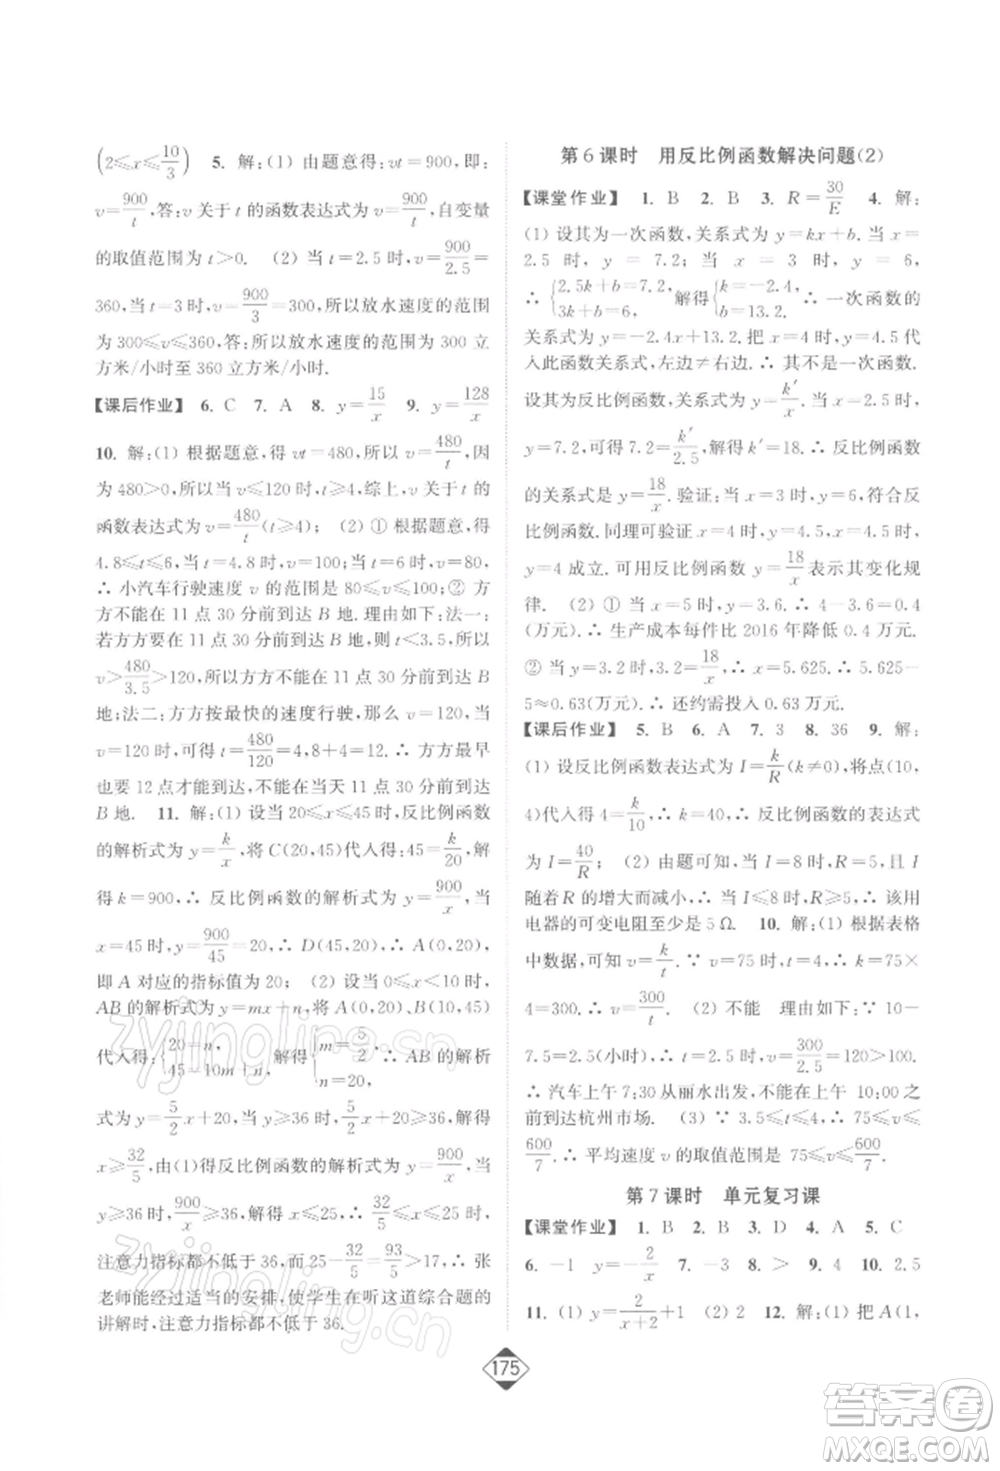 (2≤x≤10/3)　5. 解:(1) 由题意得:vt=900,即:
v=900/t,答:v 关于 t 的函数表达式为 v=900/t,自变量
的取值范围为 t>0.　(2) 当 t=2.5 时,v=900/2.5=
360,当 t=3 时,v=900/3=300,所以放水速度的范围
为 300≤v≤360,答:所以放水速度的范围为 300 立
方米/小时至 360 立方米/小时.
【课后作业】 6. C　7. A　8. y=15/x　9. y=128/x
10. 解:(1) 根据题意,得 vt=480,所以 v=480/t,因
为 480>0,所以当 v≤120 时,t≥4,综上,v 关于 t 的
函数表达式为 v=480/t(t≥4);　(2) ① 根据题意,得
4.8≤t≤6,当 t=4.8 时,v=100;当 t=6 时,v=80,
∴ 小汽车行驶速度 v 的范围为 80≤v≤100;② 方
方不能在 11 点 30 分前到达 B 地. 理由如下:法一:
若方方要在 11 点 30 分前到达 B 地,则 t<3.5,所以
v>480/3.5>120,所以方方不能在 11 点 30 分前到达 B
地;法二:方方按最快的速度行驶,那么 v=120,当
v=120 时,可得 t=480/120=4,8+4=12.∴ 方方最早
也要 12 点才能到达,所以在当天 11 点 30 分前不能到达
B 地.　11. 解:(1) 设当 20≤x≤45 时,反比例函数
的解析式为 y=k/x,将 C(20,45)代入得:45=k/20,解
得 k=900,∴ 反比例函数的解析式为 y=900/x,当
x=45 时,y=900/45=20,∴ D(45,20),∴ A(0,20),
即 A 对应的指标值为 20;　(2) 设当 0≤x<10 时,
AB 的解析式为 y=mx+n,将 A(0,20),B(10,45)
代入得:{20=n, 45=10m+n, 解得{m=5/2, n=20, ∴ AB 的解析
式为 y=5/2x+20,当 y≥36 时,5/2x+20≥36,解得
x≥32/5,由(1)得反比例函数的解析式为 y=900/x,当
y≥36 时,900/x≥36,解得 x≤25,∴ 32/5≤x≤25 时,
注意力指标都不低于 36,而 25-32/5=93/5>17,∴ 张
老师能经过适当的安排,使学生在听这道综合题的
讲解时,注意力指标都不低于 36.
第 6 课时　用反比例函数解决问题(2)
【课堂作业】 1. B　2. B　3. R=30/E　4. 解:
(1) 设其为一次函数,关系式为 y=kx+b. 当 x=
2.5 时, y = 7.2; 当 x = 3 时, y = 6,
∴ {2.5k+b=7.2, 3k+b=6, 解得{k=-2.4, b=13.2. ∴ 一次函数的
关系式为 y=-2.4x+13.2. 把 x=4 时,y=4.5 代
入此函数关系式,左边≠右边.∴ 其不是一次函数.
设其为反比例函数,关系式为 y=k′/x. 当 x=2.5 时,
y=7.2,可得 7.2=k′/2.5,解得 k′=18.∴ 反比例函数
的关系式是 y=18/x. 验证:当 x=3 时,y=6,符合反
比例函数. 同理可验证 x=4 时,y=4.5,x=4.5 时,
y=4 成立. 可用反比例函数 y=18/x表示其变化规
律.　(2) ① 当 x=5 时,y=3.6.∴ 4-3.6=0.4
(万元).∴ 生产成本每件比 2016 年降低 0.4 万元.
② 当 y=3.2 时,3.2=18/x,∴ x=5.625,∴ 5.625-
5≈0.63(万元).∴ 还约需投入 0.63 万元.
【课后作业】 5. B　6. A　7. 3　8. 36　9. 解:
(1) 设反比例函数表达式为 I=k/R(k≠0),将点(10,
4)代入得 4=k/10,∴ k=40,∴ 反比例函数的表达式
为 I=40/R;　(2) 由题可知,当 I=8 时,R=5,且 I
随着 R 的增大而减小,∴ 当 I≤8 时,R≥5,∴ 该用
电器的可变电阻至少是 5 Ω.　10. 解:(1) 根据表格
中数据,可知 v=k/t.∵ v=75 时,t=4,∴ k=75×
4=300.∴ v=300/t.　(2) 不能　理由如下:∵ 10-
7.5=2.5(小时),∴ t=2.5 时,v=300/2.5=120>100.
∴ 汽车上午 7:30 从丽水出发,不能在上午 10:00 之
前到达杭州市场.　(3) ∵ 3.5≤t≤4,∴ 75≤v≤
600/7.∴ 平均速度 v 的取值范围是 75≤v≤600/7.
第 7 课时　单元复习课
【课堂作业】 1. B　2. B　3. D　4. A　5. C
6. -1　y=-2/x　7. -3　8. >　9. 4　10. 2.5
11. (1) y=2/(x+2)+1　(2) 2　12. 解:(1) 把 A(1,
175
zyjingling.cn
zyjingling.cn
答案圈
MXQE.COM